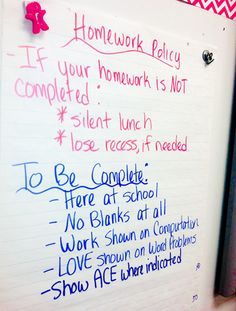 Homework Policy
- If your homework is NOT
completed:
* silent lunch
* lose recess, if needed
To Be Complete:
- Here at school
- No Blanks at all
- Work Shown on Computation
- LOVE shown on Word Problems
- Show ACE where indicated